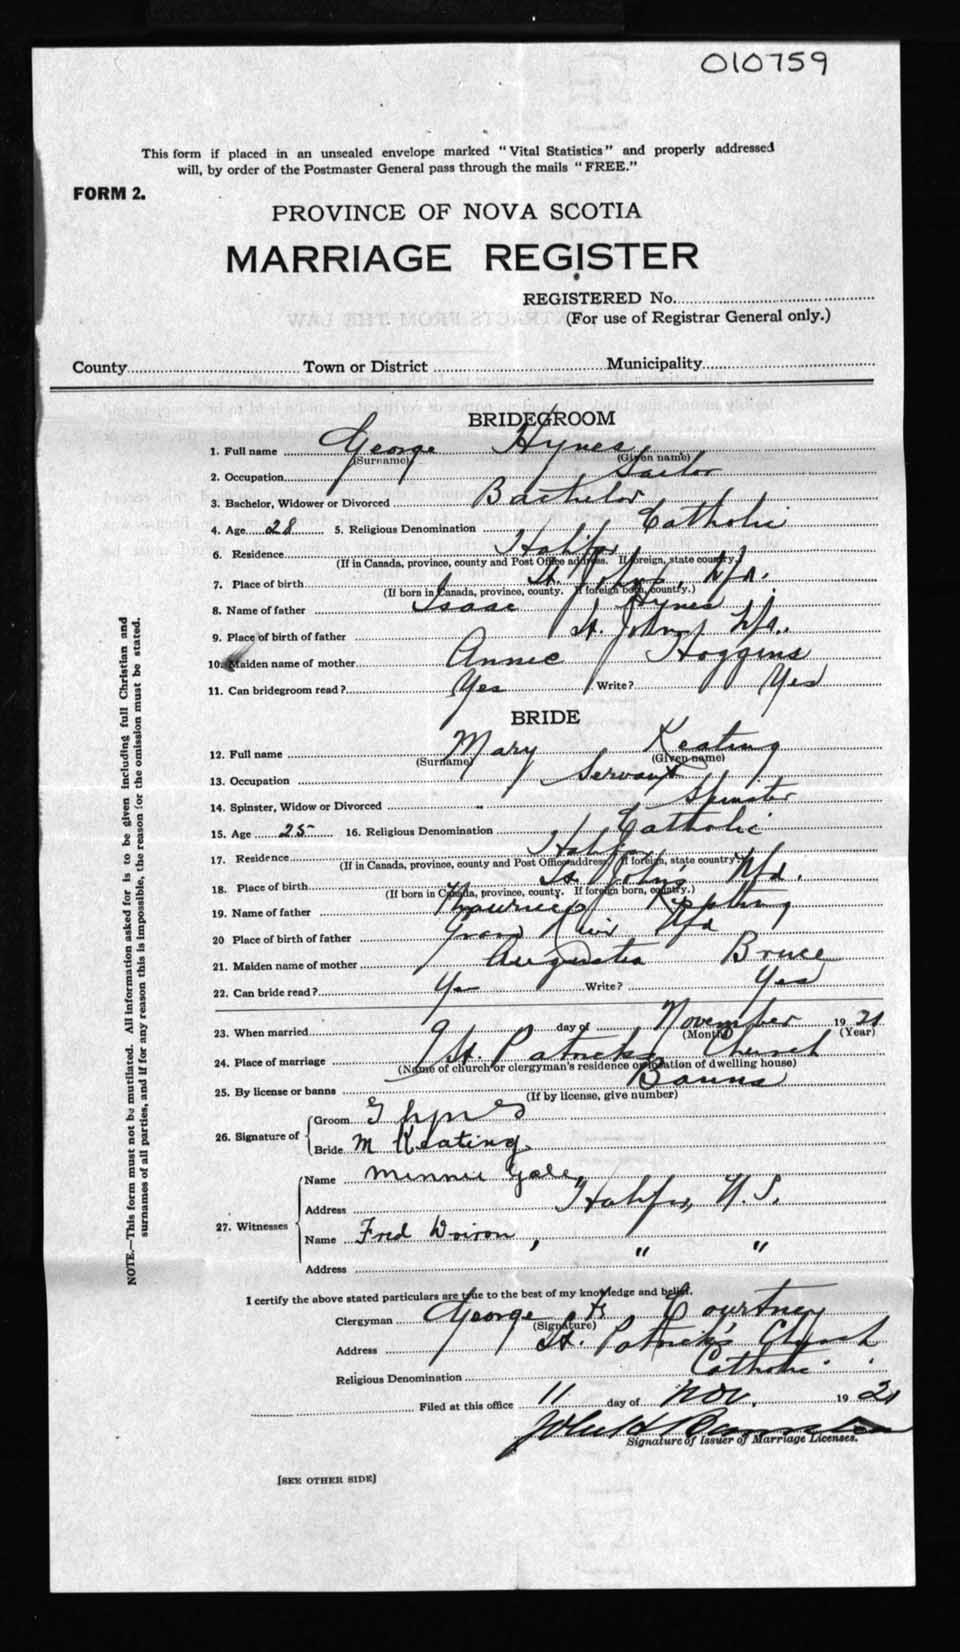 010759
This form if placed in an unsealed envelope marked "Vital Statistics" and properly addressed
will, by order of the Postmaster General pass through the mails "FREE."
FORM 2.
PROVINCE OF NOVA SCOTIA
MARRIAGE REGISTER
REGISTERED No.
(For use of Registrar General only.)
County Town or District Municipality
BRIDEGROOM
1. Full name George Hynes
(Surname) (Given name)
2. Occupation Sailor
3. Bachelor, Widower or Divorced Bachelor
4. Age 28 5. Religious Denomination Catholic
6. Residence Halifax
(If in Canada, province, county and Post Office address. If foreign, state country.)
7. Place of birth St. John's, Nfd.
(If born in Canada, province, county. If foreign born, country.)
8. Name of father Isaac Hynes
9. Place of birth of father St. John's Nfd.
10. Maiden name of mother Annie Hoggins
11. Can bridegroom read? Yes Write? Yes
BRIDE
12. Full name Mary Keating
(Surname) (Given name)
13. Occupation Servant
14. Spinster, Widow or Divorced Spinster
15. Age 25 16. Religious Denomination Catholic
17. Residence Halifax
(If in Canada, province, county and Post Office address. If foreign, state country.)
18. Place of birth St. John's Nfd.
(If born in Canada, province, county. If foreign born, country.)
19. Name of father Maurice Keating
20 Place of birth of father Grand Nfd
21. Maiden name of mother Augusta Bruce
22. Can bride read? Yes Write? Yes
23. When married 9 day of November 1921
(Month) (Year)
24. Place of marriage St. Patrick's Church
(Name of church or clergyman's residence or location of dwelling house)
25. By license or banns Banns
(If by license, give number)
26. Signature of Groom G Hynes
Bride M Keating
27. Witnesses Name Minnie Gale
Address Halifax, N.S.
Name Fred
Address " "
I certify the above stated particulars are true to the best of my knowledge and belief.
Clergyman George Courtney
(Signature)
Address St. Patrick's Church
Religious Denomination Catholic
Filed at this office 11 day of Nov. 1921
Signature of Issuer of Marriage Licenses.
[SEE OTHER SIDE]
NOTE.—This form must not be mutilated. All information asked for is to be given including full Christian and
surnames of all parties, and if for any reason this is impossible, the reason for the omission must be stated.